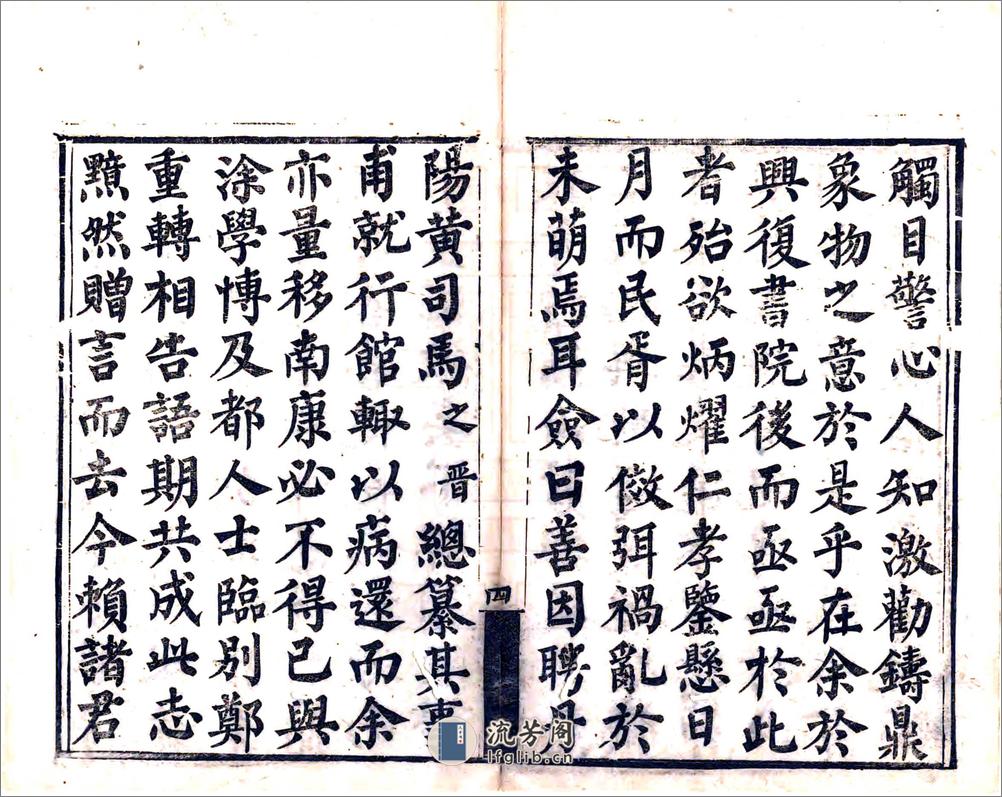 觸目警心人知激勸鑄鼎
象物之意於是乎在余於
興復書院後而亟亟於此
者殆欲炳燿仁孝鑒懸日
月而民胥以儆弭禍亂於
未萌焉耳僉曰善因聘丹
四
陽黃司馬之晉總纂其事
甫就行館輙以病還而余
亦量移南康必不得已與
涂學博及都人士臨別鄭
重轉相告語期共成此志
黯然贈言而去今賴諸君
流芳阁
lfglib.cn